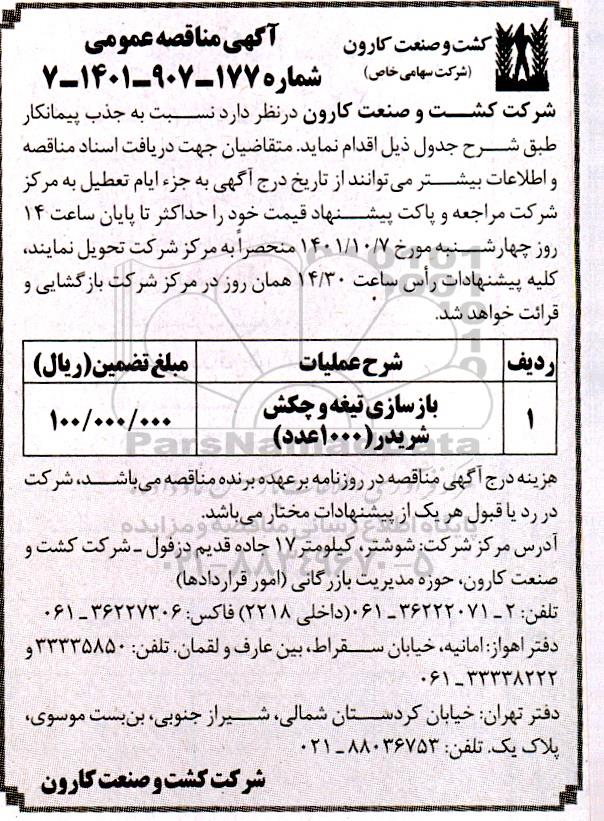 کشت و صنعت کارون
(شرکت سهامی خاص)
آگهی مناقصه عمومی
شماره ۱۷۷-۹۰۷-۱۴۰۱-۷
شرکت کشت و صنعت کارون درنظر دارد نسبت به جذب پیمانکار
طبق شرح جدول ذیل اقدام نماید. متقاضیان جهت دریافت اسناد مناقصه
و اطلاعات بیشتر می‌توانند از تاریخ درج آگهی به جزء ایام تعطیل به مرکز
شرکت مراجعه و پاکت پیشنهاد قیمت خود را حداکثر تا پایان ساعت ۱۴
روز چهارشنبه مورخ ۱۴۰۱/۱۰/۷ منحصراً به مرکز شرکت تحویل نمایند،
کلیه پیشنهادات رأس ساعت ۱۴/۳۰ همان روز در مرکز شرکت بازگشایی و
قرائت خواهد شد.
ردیف شرح عملیات مبلغ تضمین (ریال)
۱ بازسازی تیغه و چکش شریدر (۱۰۰۰عدد) ۱۰۰/۰۰۰/۰۰۰
هزینه درج آگهی مناقصه در روزنامه برعهده برنده مناقصه می‌باشد، شرکت
در رد یا قبول هر یک از پیشنهادات مختار می‌باشد.
آدرس مرکز شرکت: شوشتر، کیلومتر ۱۷ جاده قدیم دزفول - شرکت کشت و
صنعت کارون، حوزه مدیریت بازرگانی (امور قراردادها)
تلفن: ۲-۳۶۲۲۲۰۷۱-۰۶۱ (داخلی ۲۲۱۸) فاکس: ۳۶۲۲۷۳۰۶-۰۶۱
دفتر اهواز: امانیه، خیابان سقراط، بین عارف و لقمان. تلفن: ۳۳۳۳۵۸۵۰ و
۳۳۳۳۸۲۲۲-۰۶۱
دفتر تهران: خیابان کردستان شمالی، شیراز جنوبی، بن‌بست موسوی،
پلاک یک. تلفن: ۸۸۰۳۶۷۵۳-۰۲۱
شرکت کشت و صنعت کارون
ParsNamadData
پایگاه اطلاع رسانی مناقصه و مزایده
۰۲۱-۸۸۳۴۹۶۷۰-۵